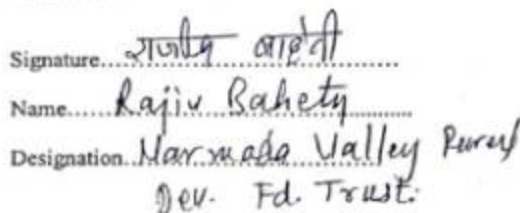 Signature....राजीव बाहेती....
Name....Rajiv Bahety....
Designation..Narmada Valley Rural
Dev. Fd. Trust.